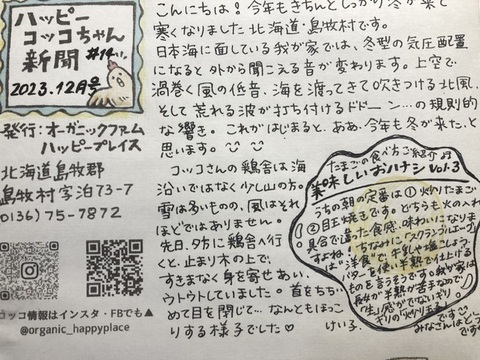 ハッピー
コッコちゃん
新聞 #14
2023.12月号
発行：オーガニックファーム
ハッピープレイス
北海道島牧郡
島牧村字泊73-7
(0136) 75-7872
コッコ情報はインスタ・FBでも▲
@organic_happyplace
こんにちは！今年もきちんとしっかり冬が来て
寒くなりました北海道・島牧村です。
日本海に面している我が家では、冬型の気圧配置
になると外から聞こえる音が変わります。上空で
渦巻く風の低音、海を渡ってきて吹きつける北風、
そして荒れる波が打ち付けるドドーン…の規則的
な響き。これがはじまると、ああ、今年も冬が来た、と
思います。
コッコさんの鶏舎は海
沿いではなく少し山の方。
雪は多いものの、風はそれ
ほどではありません。
先日、夕方に鶏舎へ行
くと、止まり木の上で、
すきまなく身を寄せあい、
ウトウトしていました。首をちぢ
めて目を閉じて…なんともほっこ
りする様子でした♡
たまごの食べ方ご紹介♬
美味しいおハナシ Vol.3
うちの朝の定番は①炒りたまご
②目玉焼きです。どちらも火の入れ
具合で違った食感、味わいになりま
すよね！ちなみに"スクランブルエッグ"
は"洋食"で、牛乳や塩こしょう、
バターを使い半熟で仕上げる
ものを言うそうです。我が家は
長女が半熟が苦手なので
"生"感がでないギリ
ギリの炒りたまご
です
みなさんはどう
けい子